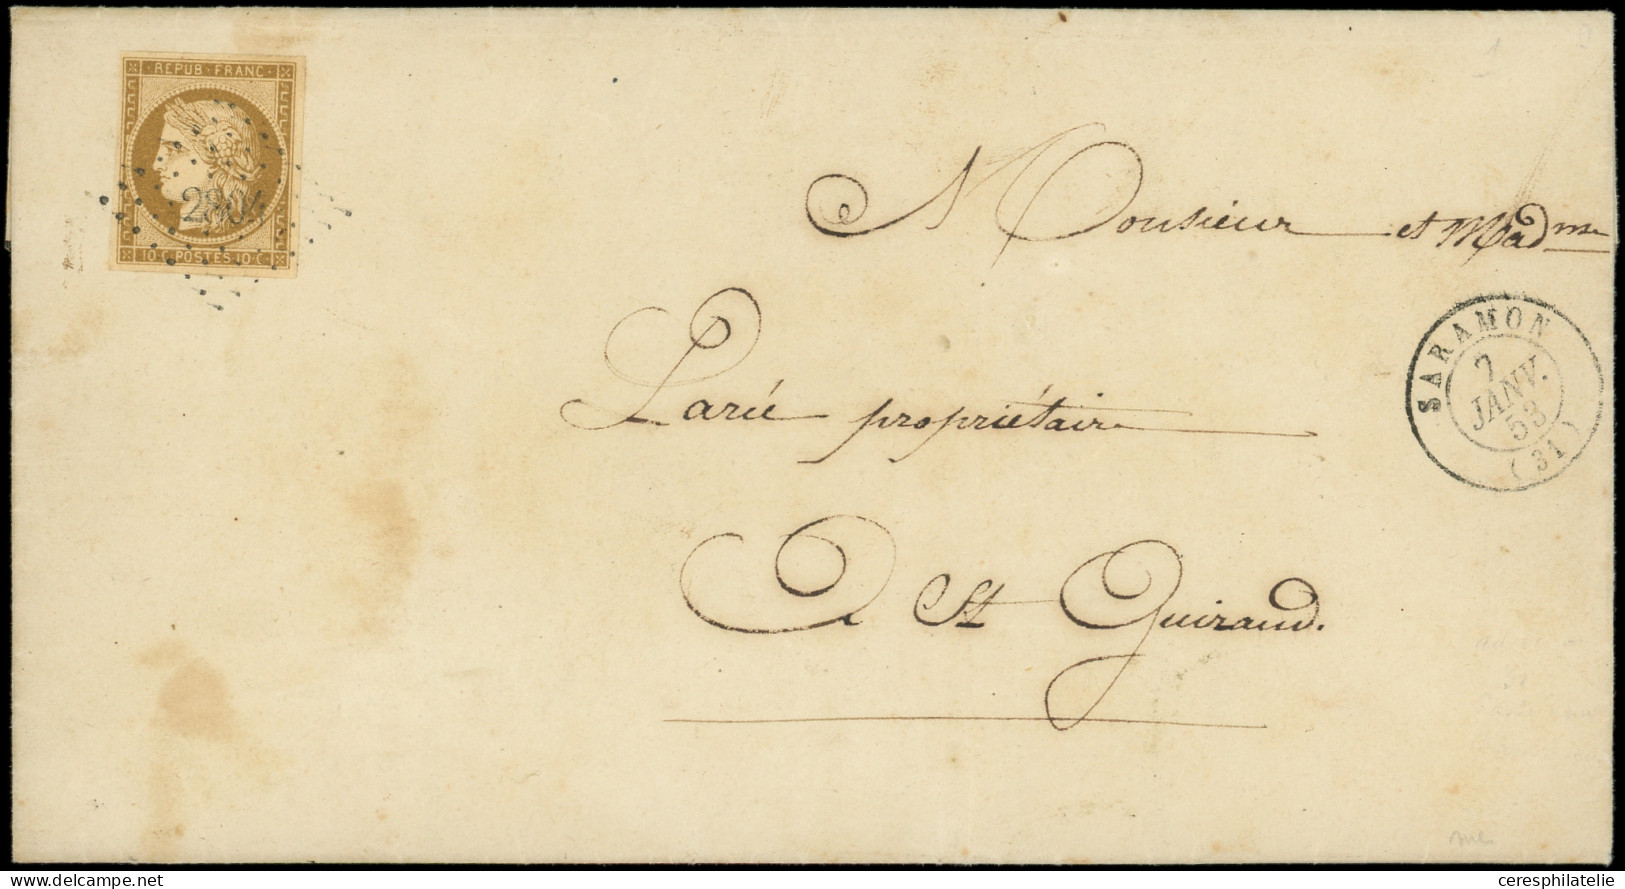 REPUB · FRANC ·
2804
10 · C · POSTES · 10 · C ·
Monsieur et Madme
Larée propriétaire
A St Guiraud.
SARAMON
7
JANV.
53
(31)
1
delcampe.net
ceresphilatelie